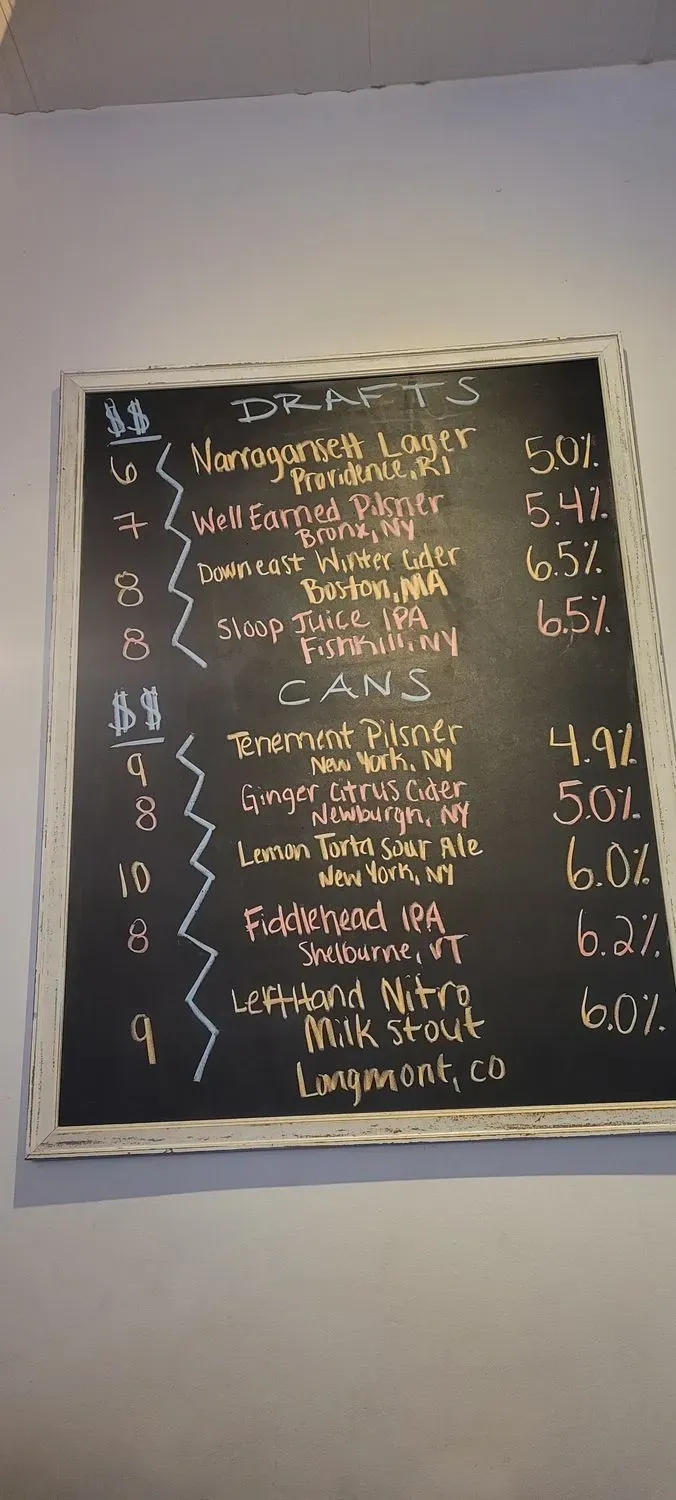 $$ DRAFTS
6 Narragansett Lager 5.0%
Providence, RI
7 Well Earned Pilsner 5.4%
Bronx, NY
8 Downeast Winter Cider 6.5%
Boston, MA
8 Sloop Juice IPA 6.5%
Fishkill, NY
$$ CANS
9 Tenement Pilsner 4.9%
New York, NY
8 Ginger Citrus Cider 5.0%
Newburgh, NY
10 Lemon Torta Sour Ale 6.0%
New York, NY
8 Fiddlehead IPA 6.2%
Shelburne, VT
9 Left Hand Nitro 6.0%
Milk Stout
Longmont, CO